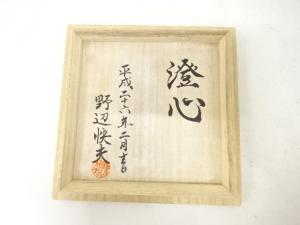 澄心
平成二十六年二月吉日
野辺快夫